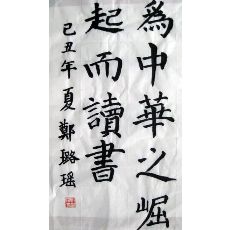 為中華之崛
起而讀書
己丑年夏鄭璐瑶